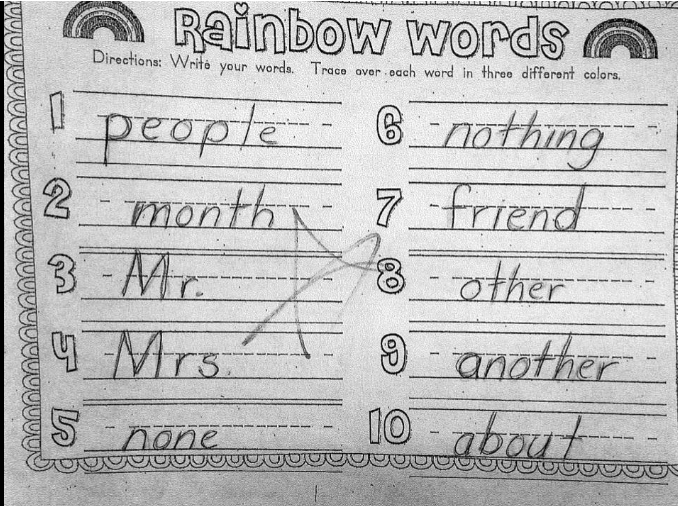 Rainbow Words
Directions: Write your words. Trace over each word in three different colors.
1 people
2 month
3 Mr.
4 Mrs.
5 none
6 nothing
7 friend
8 other
9 another
10 about